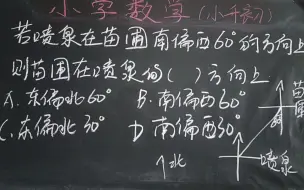 小学数学(小千京)
若喷泉在苗圃南偏西60°的方向上
则苗圃在喷泉的( )方向上
A. 东偏北60° B. 南偏西60°
C. 东偏北30° D 南偏西30°
苗圃
↑北
喷泉